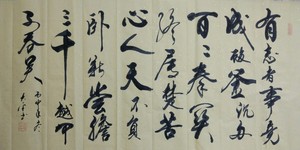 有志者事竟
成破釜沉舟
百二秦关
终属楚苦
心人天不负
卧薪尝胆
三千越甲
可吞吴